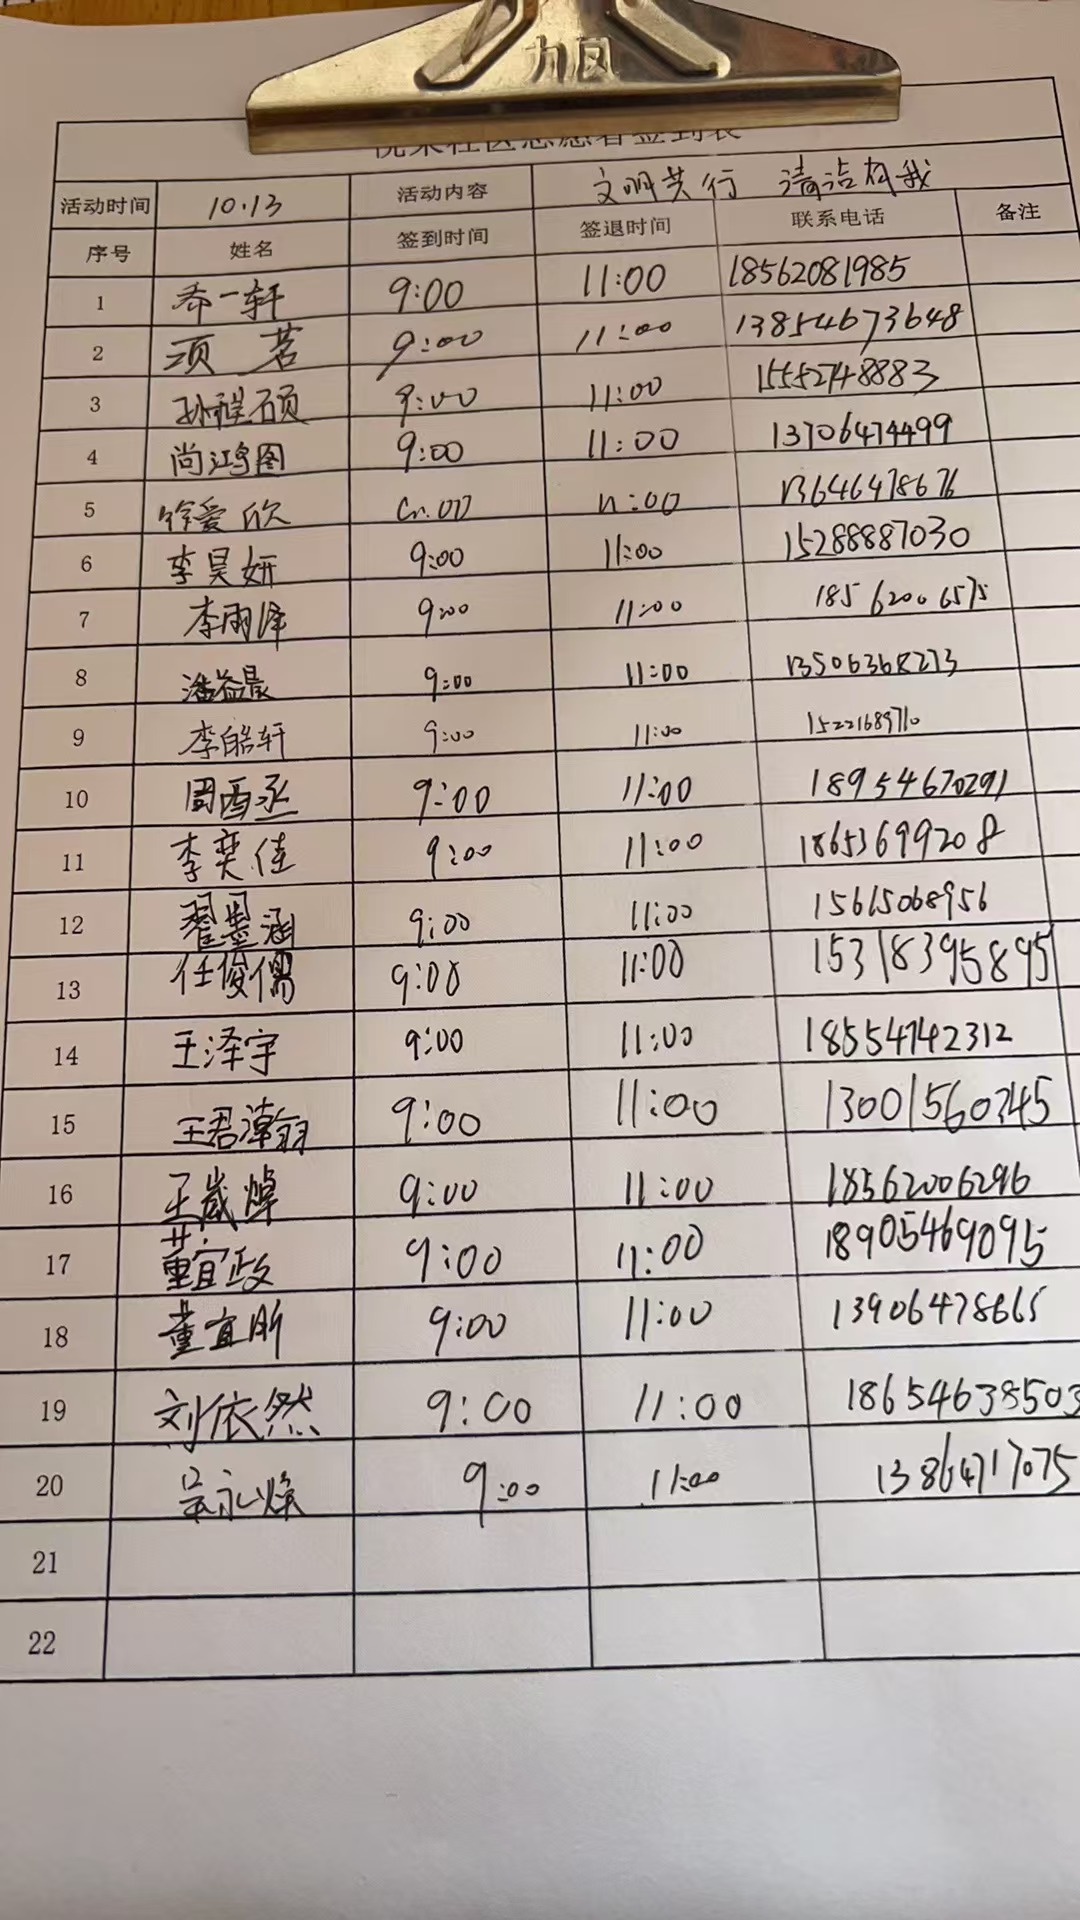 力风
社区志愿者签到表
活动时间 10.13 活动内容 文明共行 清洁有我
序号 姓名 签到时间 签退时间 联系电话 备注
1 乔一轩 9:00 11:00 18562081985
2 项茗 9:00 11:00 13854673648
3 孙祺硕 9:00 11:00 15552748883
4 尚鸿图 9:00 11:00 13706474499
5 徐爱欣 11:00 13646478676
6 李昊妍 9:00 11:00 15288887030
7 李雨泽 9:00 11:00 18562006575
8 潘益晨 9:00 11:00 13506368273
9 李皓轩 9:00 11:00 15221689710
10 周酉丞 9:00 11:00 18954670291
11 李奕佳 9:00 11:00 18653699208
12 翟墨涵 9:00 11:00 15615068956
13 任俊儒 9:00 11:00 15318395895
14 王泽宇 9:00 11:00 18554742312
15 王君漳翔 9:00 11:00 13001560745
16 王崴焯 9:00 11:00 18562006296
17 董宜政 9:00 11:00 18905469095
18 董宜昕 9:00 11:00 13906478665
19 刘依然 9:00 11:00 18654638503
20 吴永焕 9:00 11:00 13864717075
21
22